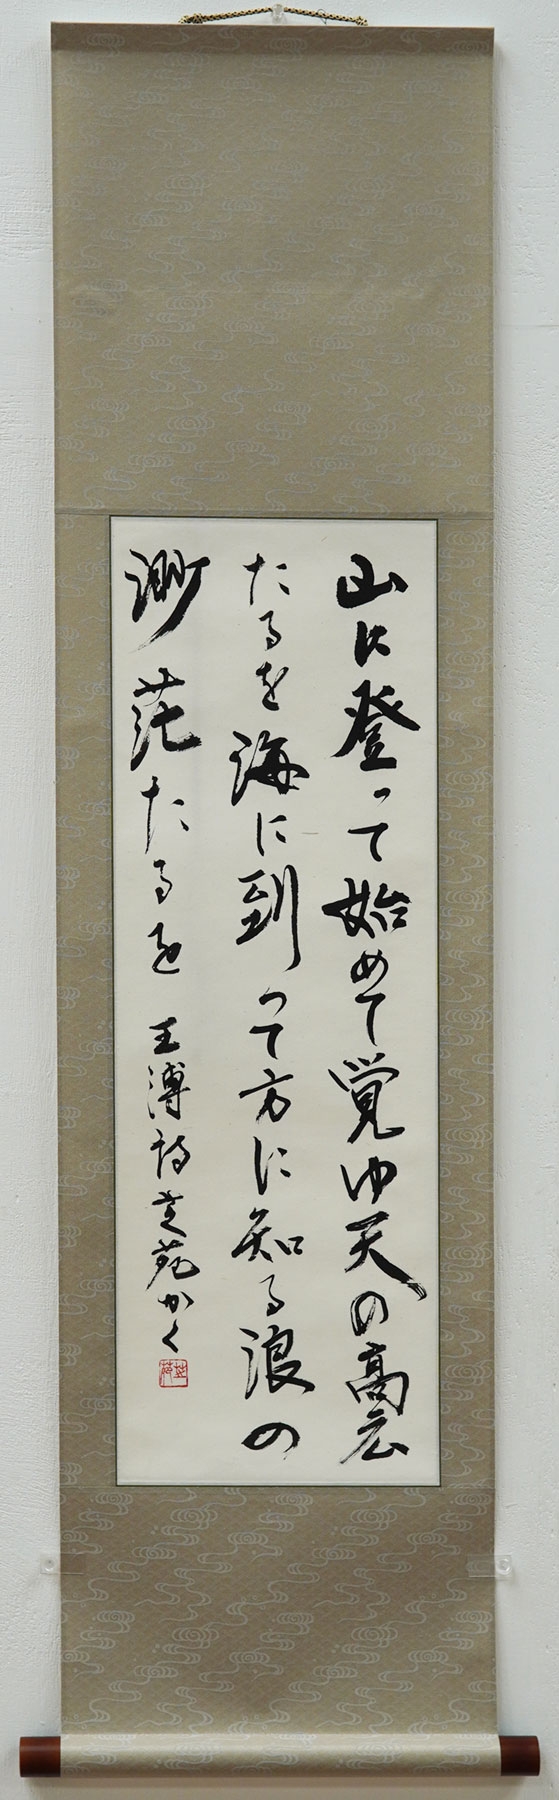 山に登って始めて覚ゆ天の高広
たるを海に到って方に知る浪の
渺茫たるを 王溥詩 芝苑かく